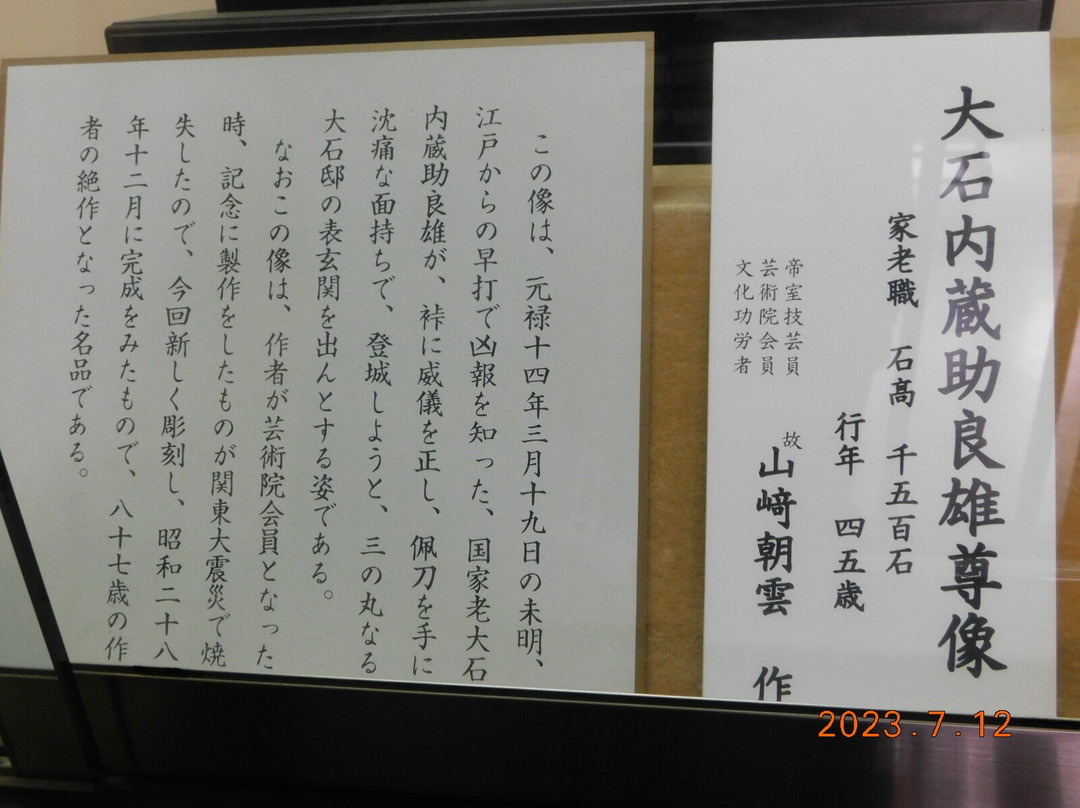 大石内蔵助良雄尊像
家老職 石高 千五百石
行年 四五歳
帝室技芸員
芸術院会員
文化功労者
故 山﨑朝雲 作
この像は、元禄十四年三月十九日の未明、
江戸からの早打で凶報を知った、国家老大石
内蔵助良雄が、裃に威儀を正し、佩刀を手に
沈痛な面持ちで、登城しようと、三の丸なる
大石邸の表玄関を出んとする姿である。
なおこの像は、作者が芸術院会員となった
時、記念に製作をしたものが関東大震災で焼
失したので、今回新しく彫刻し、昭和二十八
年十二月に完成をみたもので、八十七歳の作
者の絶作となった名品である。
2023.7.12